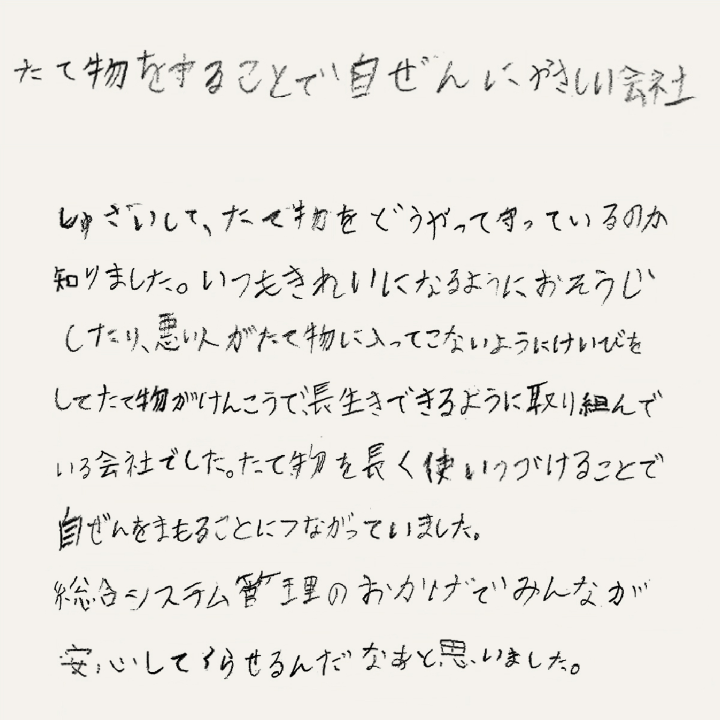 たて物を守ることで自ぜんにやさしい会社
しゅざいして、たて物をどうやって守っているのか
知りました。いつもきれいになるようにおそうじ
したり、悪い人がたて物に入ってこないようにけいびを
してたて物がけんこうで、長生きできるように取り組んで
いる会社でした。たて物を長く使いつづけることで
自ぜんをまもることにつながっていました。
総合システム管理のおかげでみんなが
安心してくらせるんだなあと思いました。